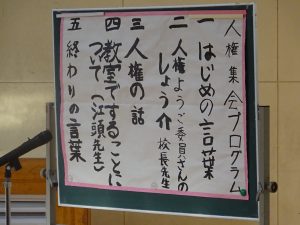 人権集会プログラム
一 はじめの言葉
二 人権ようご委員さんの
しょう介 校長先生
三 人権の話
四 教室ですることに
ついて(江頭先生)
五 終わりの言葉